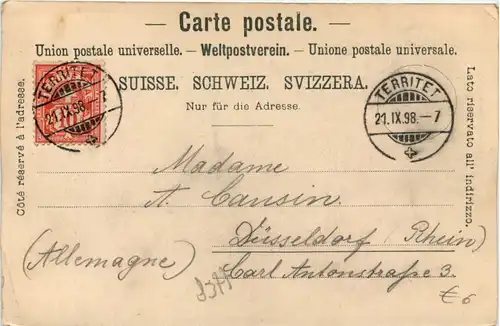 — Carte postale. —
Union postale universelle. — Weltpostverein. — Unione postale universale.
SUISSE. SCHWEIZ. SVIZZERA.
Nur für die Adresse.
Côté réservé à l'adresse.
Lato riservato all' indirizzo.
TERRITET
21.IX.98.
TERRITET
21.IX.98.–7
Madame
A. Cansin.
Düsseldorf (Rhein)
(Allemagne) Carl Antonstraße 3.
€ 6